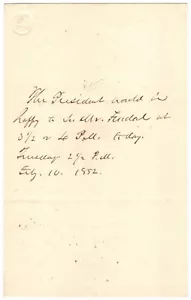 The President would be
happy to see Mr. at
3½ or 4 P.M. today.
Tuesday 2½ P.M.
Feby. 10. 1852.